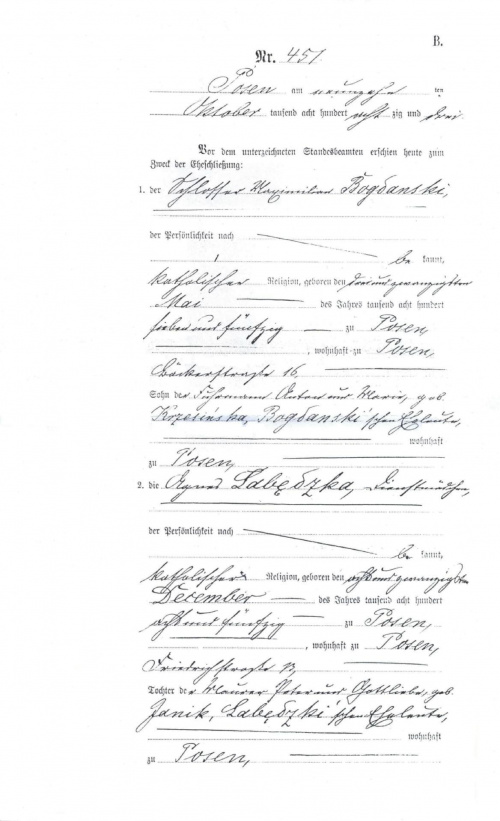 B.
Nr. 451
Posen am neunzehn ten
Oktober tausend acht hundert acht zig und drei
Vor dem unterzeichneten Standesbeamten erschien heute zum
Zweck der Eheschließung:
1. der Schlosser Maximilian Bogdanski,
der Persönlichkeit nach
be kannt,
katholischer Religion, geboren den drei und zwanzigsten
Mai des Jahres tausend acht hundert
sieben und fünfzig zu Posen,
, wohnhaft zu Posen,
Bäckerstraße 16.
Sohn der Fuhrmann Anton und Marie, geb.
Krzesińska, Bogdanski'schen Eheleute,
wohnhaft
zu Posen,
2. die Agnes Labędzka, Dienstmädchen,
der Persönlichkeit nach
be kannt,
katholischer Religion, geboren den acht und zwanzigsten
December des Jahres tausend acht hundert
acht und fünfzig zu Posen,
, wohnhaft zu Posen,
Friedrichstraße 13,
Tochter der Maurer Peter und Gottliebe, geb.
Janik, Labędzki'schen Eheleute,
wohnhaft
zu Posen,